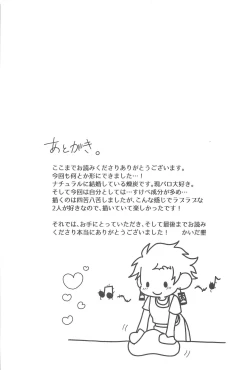 あとがき。
ここまでお読みくださりありがとうございます。
今回も何とか形にできました…！
ナチュラルに結婚している煉炭です。現パロ大好き。
そして今回は自分としては…すけべ成分が多め…
描くのは四苦八苦しましたが、こんな感じでラブラブな
2人が好きなので、描いていて楽しかったです！
それでは、お手にとっていただき、そして最後までお読み
くださり本当にありがとうございました！　かいだ